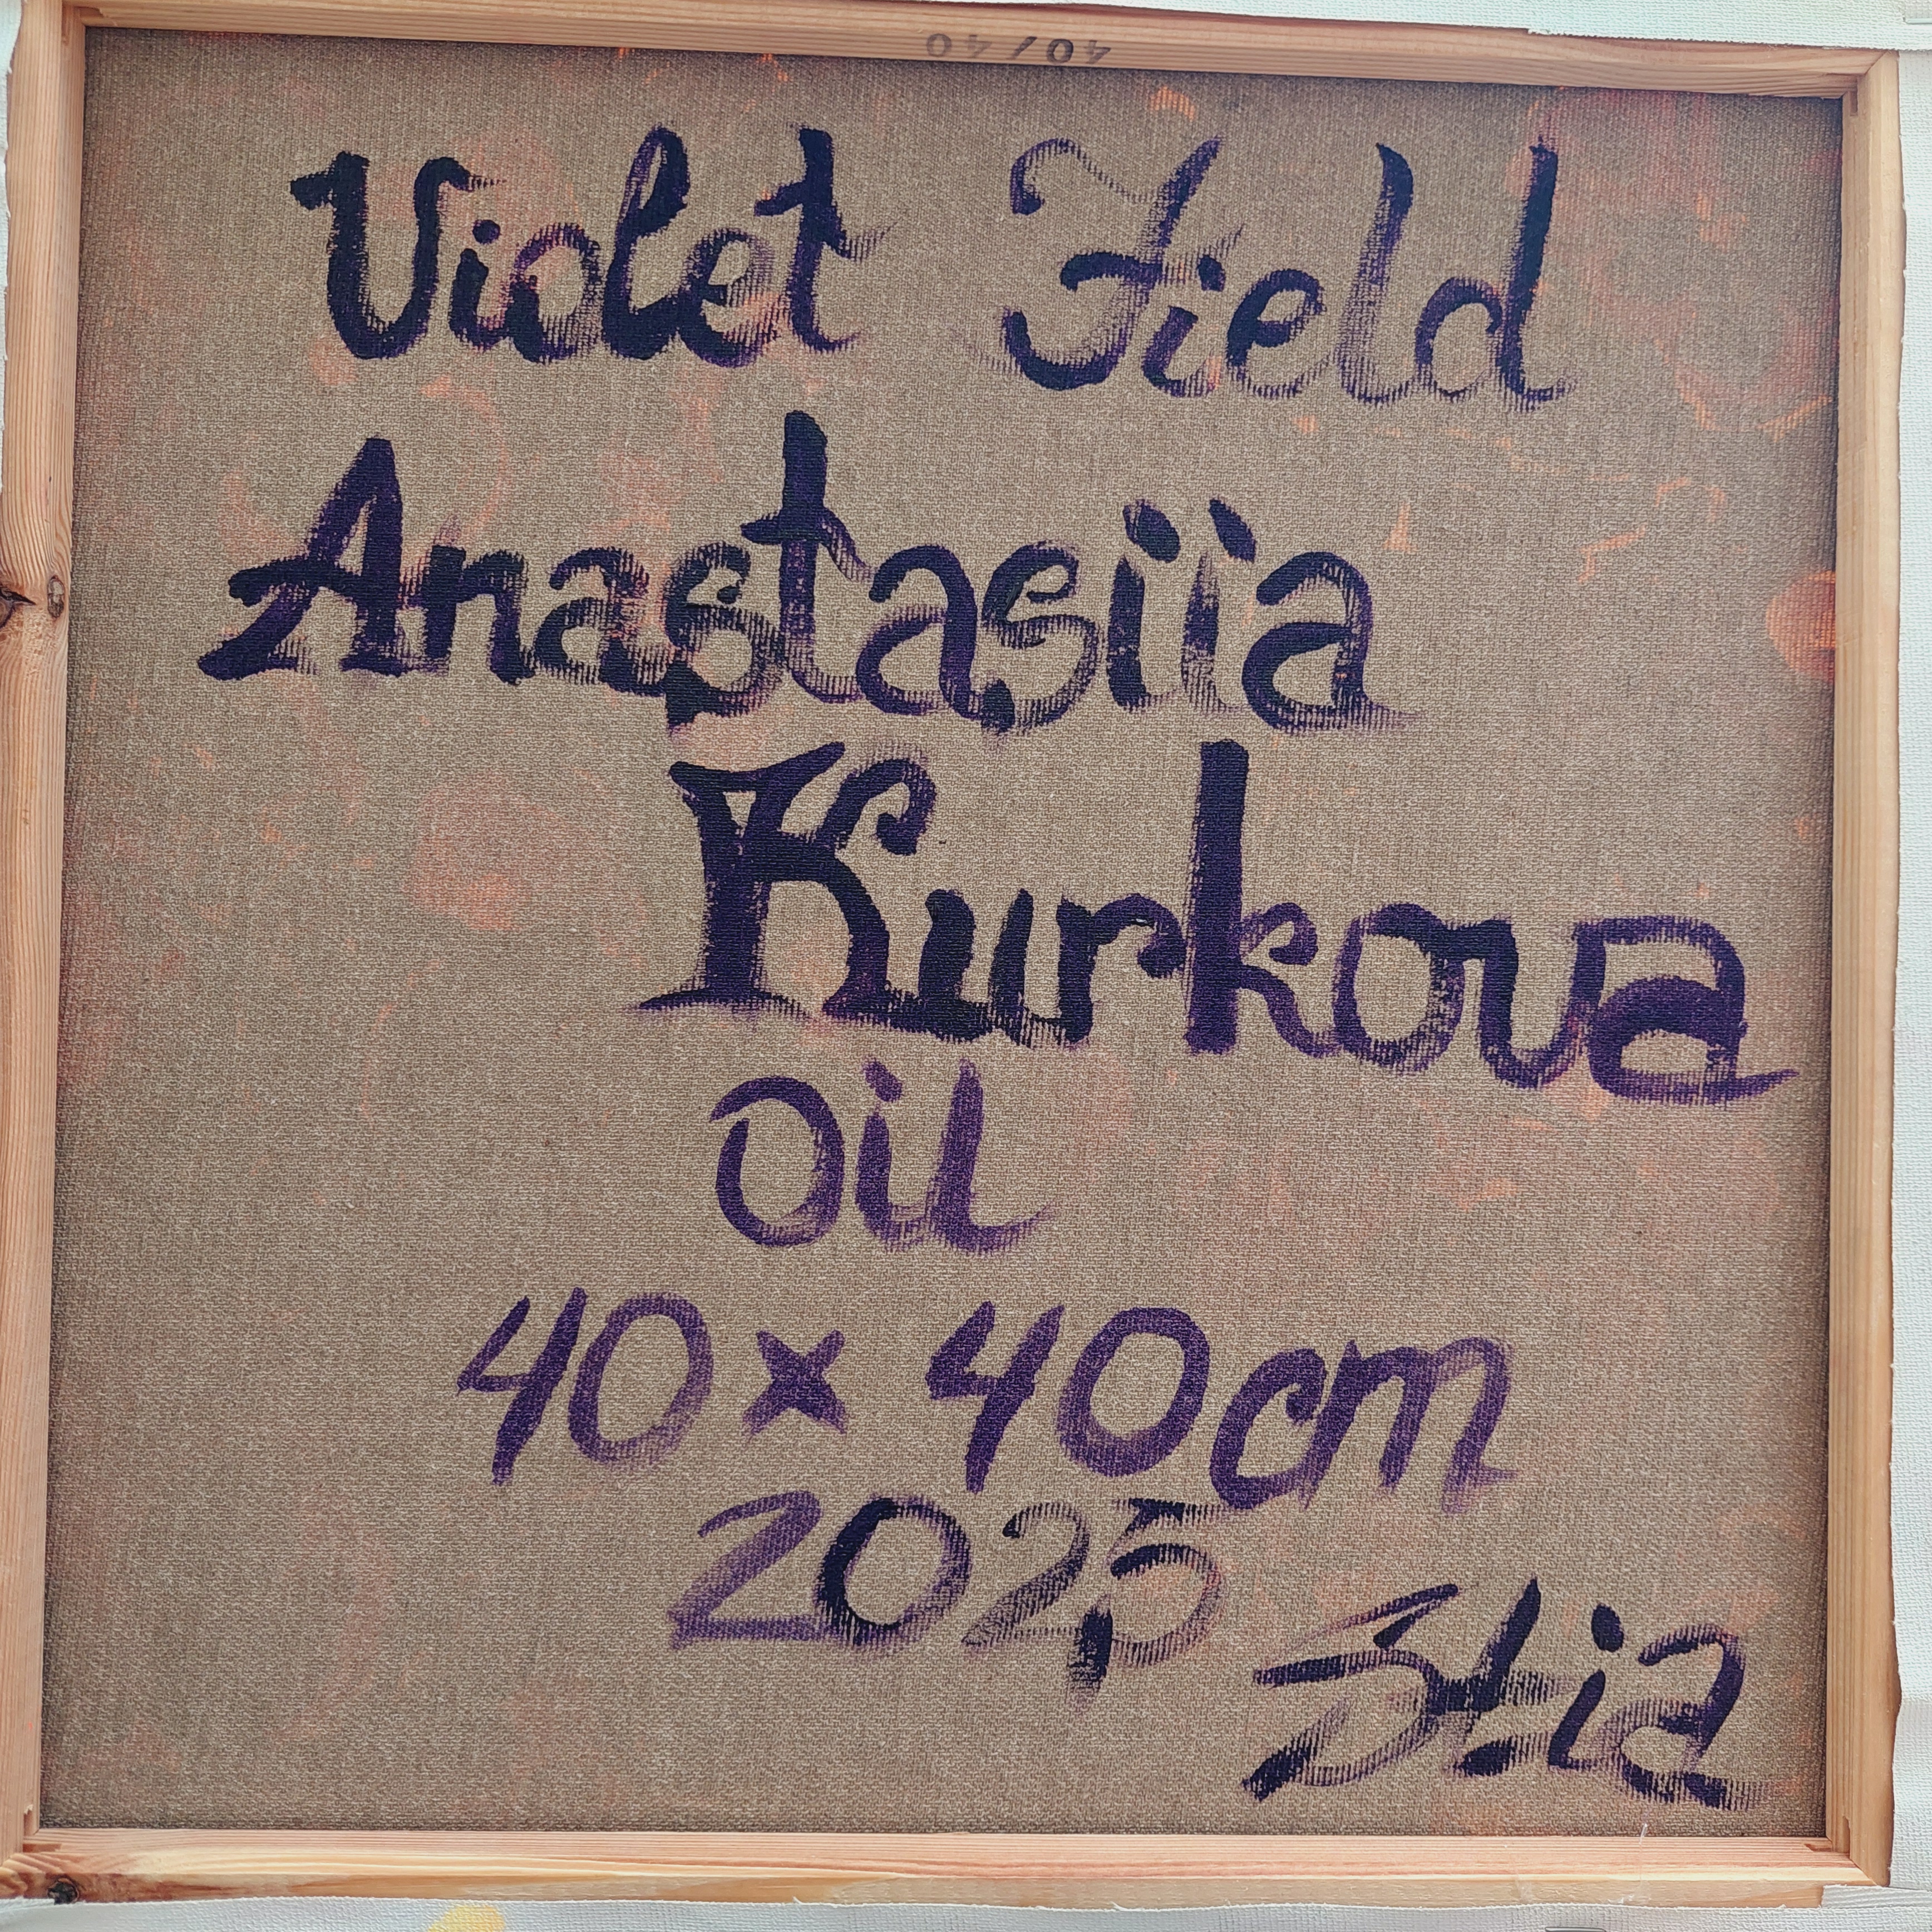 40/40
Violet Field
Anastasiia
Kurkova
Oil
40 x 40cm
2025
Stia